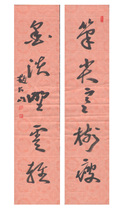 筆尖寒樹瘦
墨淡野雲輕